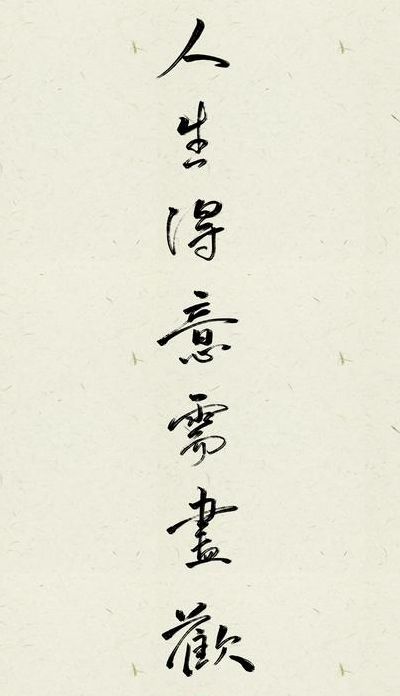 人生得意需盡歡